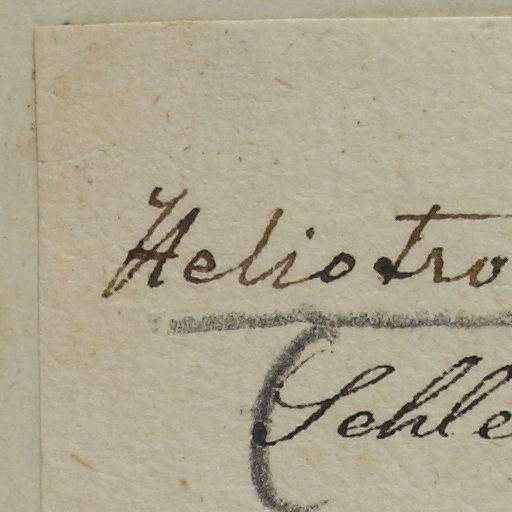 Heliotro
(Schle